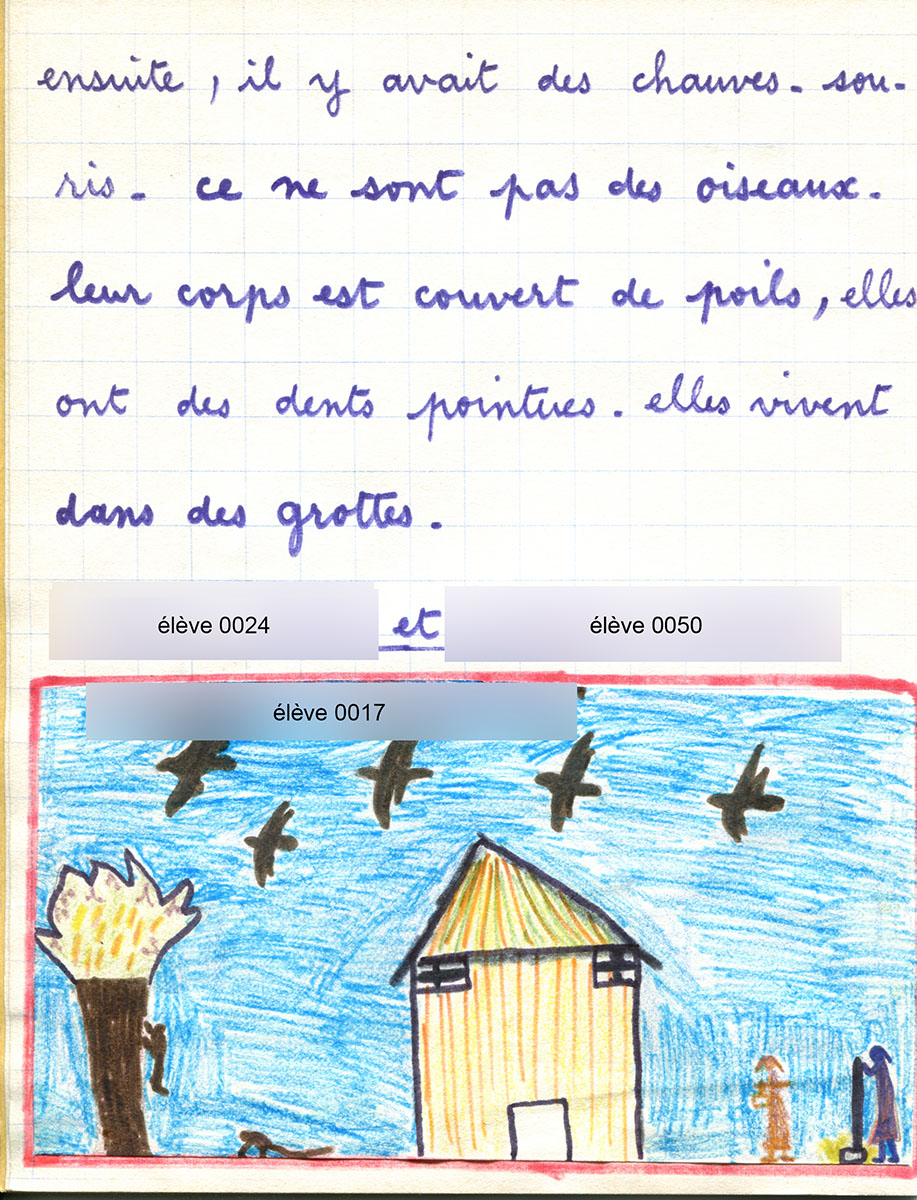 ensuite, il y avait des chauves-sou-
ris. ce ne sont pas des oiseaux.
leur corps est couvert de poils, elles
ont des dents pointues. elles vivent
dans des grottes.
élève 0024 et élève 0050
élève 0017